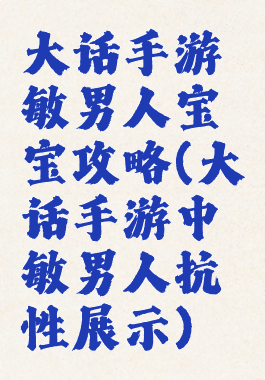 大话手游
敏男人宝
宝攻略(大
话手游中
敏男人抗
性展示)